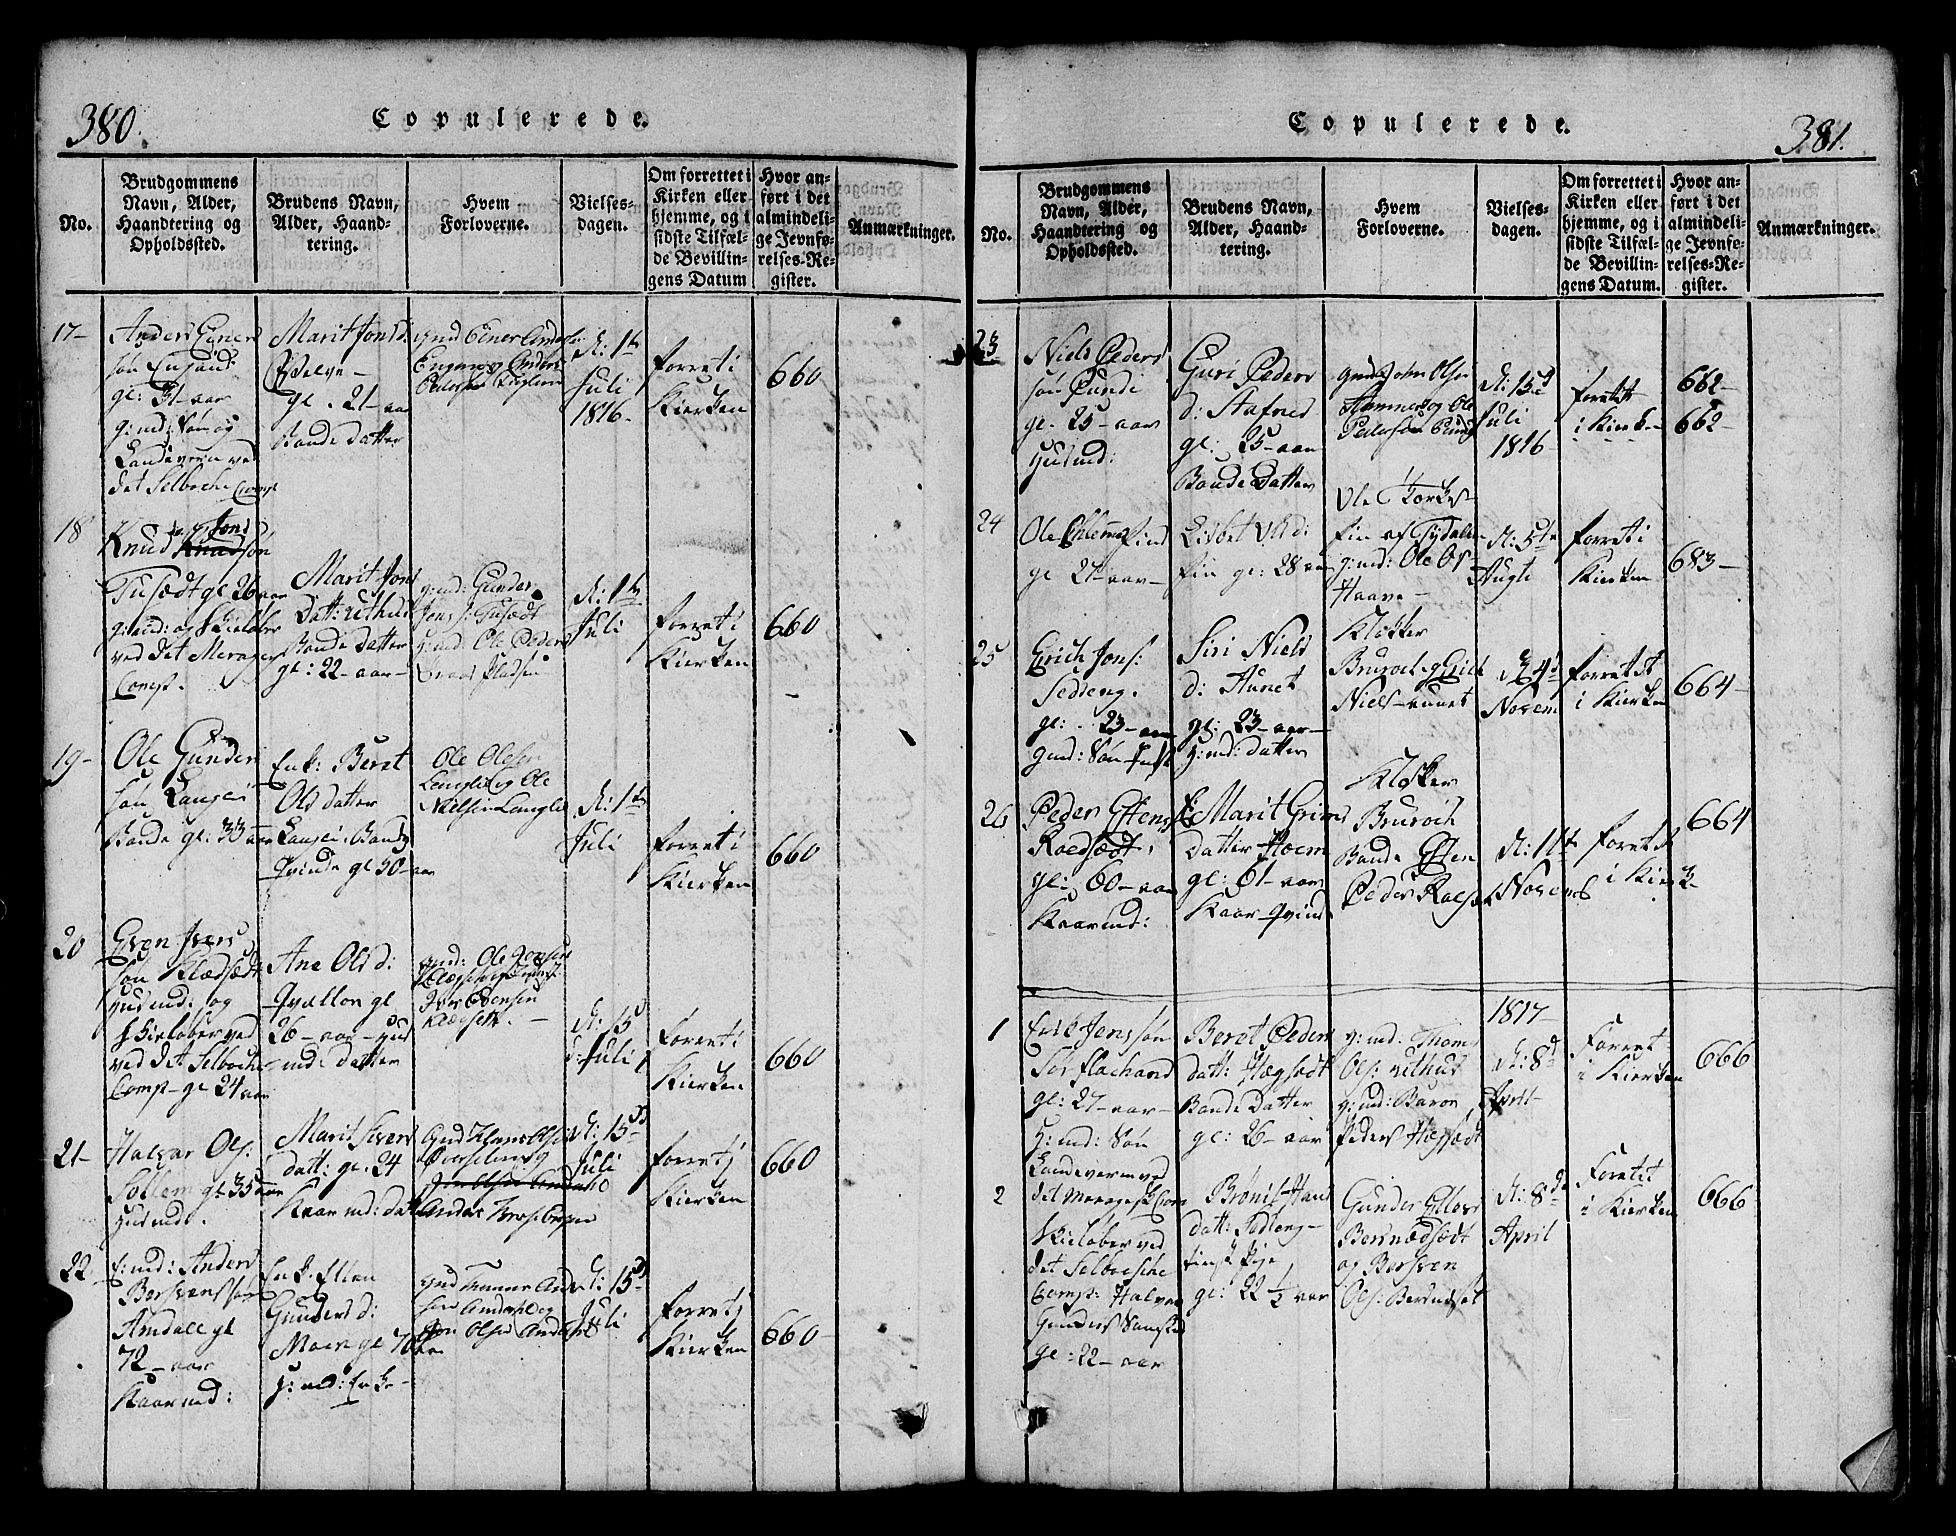 380.
Copulerede.
No.
Brudgommens
Navn, Alder,
Haandtering og
Opholdssted.
Brudens Navn,
Alder, Haand-
tering.
Hvem
Forloverne.
Vielses-
dagen.
Om forrettet i
Kirken eller
hjemme, og i
sidste Tilfæl-
de Bevillin-
gens Datum
Hvor an-
ført i det
almindeli-
ge Jevnfø-
relses-Re-
gister.
Anmærkninger.
17-
Anders Einers
søn
gl: 31-aar
g:md: Søn og
Landevern ved
det Selboche Comp
Marit Jons d:
Evelve-
gl. 21-aar
Bonde datter
Gmd Einer Anders
Engen og Anders
Peders
d: 1te
Juli
1816-
forret i
Kierken
660
18
Knud Jons
søn
Tusædt gl 26 aar
g:md: og Skieløber
ved det Merager
Comp.
Marit Jons
Datt: Uthus
Bonde datter
gl: 22-aar-
g:md: Gunder
Jons: Tusædt
g:md: Ole Peders
d: 1te
Juli
forret i
Kierken
660
19-
Ole Gunders
søn Langli
Bonde gl: 33 aar
Enk: Beret
Ols datter
Langli: Bonde
Qvinde gl 50-aar
Ole Olsen
Langli og Ole
Nielsen Langli
d: 1te
Juli
forret i
Kierken
660
20
Even Ivers
søn Klædsædt
Husmd: og
Skieløber ved
ved det Selboche
Comp- gl 24 aar
Ane Ols d:
Qvællon gl
26-aar-Hus
md: datter
gmd: Ole Jonsen
Iver Evensen
Klæsett.
d: 15d
Juli
forret i
Kierken
660
21-
Halvar Ols:
Sollem gl 35 aar
Husmd.
Marit Ivers
datt: gl. 24
Kaar md: datt
Gmd
Anders
d: 15d
Juli
forret i
Kierken
660
22-
E:md: Anders
Borsvens søn
Amdale gl
72-aar
Kaarmd:
Enk. Ellen
Gunders d:
Moen gl 70 aar
g:md: Enke-
gmd
sen Amdahl og
Jon Olsen Amdahl
d: 15d
Juli
forret i
Kierken
660
381.
Copulerede.
No.
Brudgommens
Navn, Alder,
Haandtering og
Opholdssted.
Brudens Navn,
Alder, Haand-
tering.
Hvem
Forloverne.
Vielses-
dagen.
Om forrettet i
Kirken eller
hjemme, og i
sidste Tilfæl-
de Bevillin-
gens Datum.
Hvor an-
ført i det
almindeli-
ge Jevnfø-
relses-Re-
gister.
Anmærkninger.
23
Niels Peders
søn Rundi
gl. 25-aar
Husmd:
Guri Peders
d: Stafnes
gl: 25-aar
Bonde Datter
gmd John Olsen
Hammer og Ole
Pedersen
d: 15d
Juli
1816
forrett
i Kierk-
662-
662-
24
Ole find
gl 27-aar-
Lisbet Ols d:
fin gl: 28 aar
Ole Torkes
fin af Tydalen
g:md: Ole Ols
Haave-
d: 5te
Augti
forret i
Kierken
683-
25
Erich Jons:
Sedteng.
gl: - 23-aar
gmd: Søn
Siri Niels
d: Aunet
gl: 23-aar-
g:md: datter
Klokker
Buroch og Erich
Niels-aunet
d 4d
Novem
forrett
i Kierken
664-
26
Peder Estens
Roedsædt,
gl: 60-aar
Kaarmd:
E: Marit Grims
datter Hoem
gl: 61-aar
Kaar Qvind
Klokker
Buroch
Bonde Esten
Peders Roes
d: 11te
Novemb
foret
i Kierk-
664
1817-
1
Erik Jenssøn
Sørflachand
gl: 27-aar-
g:md: Søn
Landevern ved
det Meragesk Com
Beret Peders
datt: Hægsædt
Bonde Datter
gl: 26-aar
g:md: Thoms
Ols: Uthus
g:md: Baron
Peders Hægsædt
d: 8d
April-
Forret-
i Kierken
666
2
Skieløber ved
det Selboeske
Comp: Halvor
Gunders
gl: 22-aar
Brønil Hans
datt: Sedteng-
finsk Pige
gl: 22 1/2 aar
Gunder Ellevs
Bersnædsædt
og Borsven
Ols: Bersnæsset
d: 8de
April
Foretet
i Kierken
666